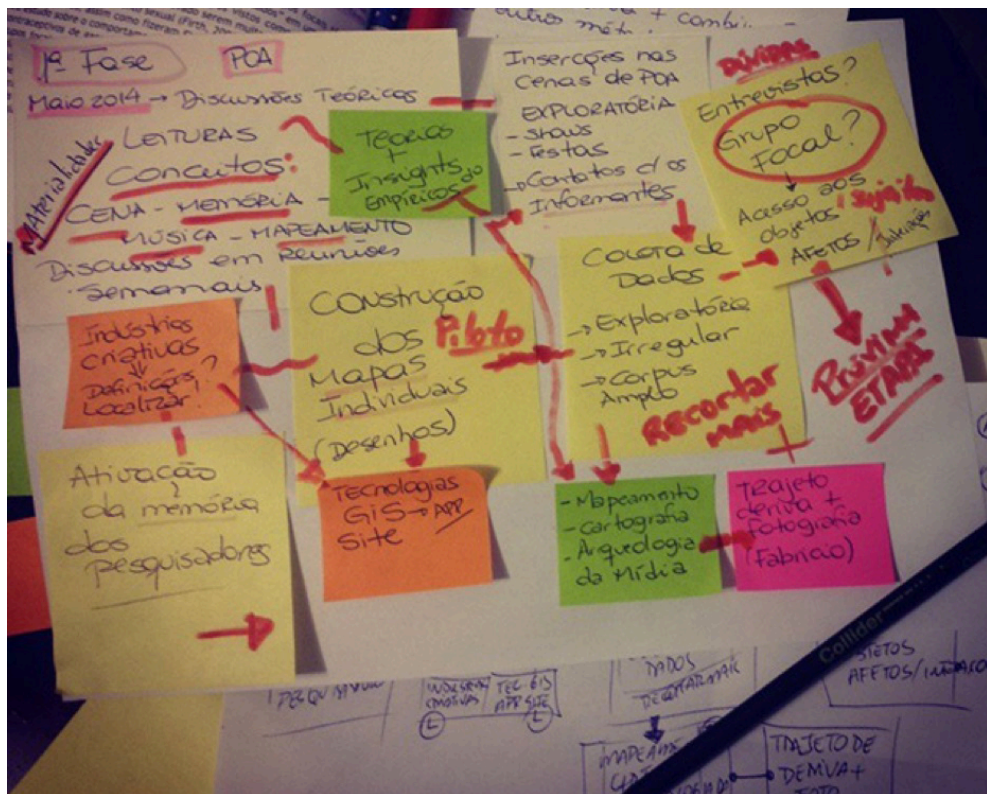 1ª Fase POA
Maio 2014 → Discussões Teóricas
Materialidades
LEITURAS
CONCEITOS:
CENA - MEMÓRIA -
MÚSICA - MAPEAMENTO
Discussões em Reuniões
Semanais
Teorias
+
Insights do
Empíricos
Inserções nas
Cenas de POA
EXPLORATÓRIA
- Shows
- Festas
→ Contatos c/ os
Informantes
DÚVIDAS
Entrevistas?
Grupo
Focal?
↓
Acesso aos
objetos / Sujeitos
AFETOS /
PRÓXIMA
ETAPA
Indústrias
criativas
⇓
Definições?
Localizar!
CONSTRUÇÃO
dos Piloto
Mapas
Individuais
(Desenhos)
Coleta de
Dados
→ Exploratória
→ Irregular
→ Corpus
Amplo
RECORTAR
MAIS
Ativação
da memória
dos
pesquisadores
Tecnologias
GIS → APP
Site
- Mapeamento
- Cartografia
- Arqueologia
da Mídia
Trajeto
deriva +
Fotografia
(Fabricio)
Collider
DADOS
RECORTAR MAIS
TEC. GIS
APP SITE
L
L
AFETOS/
TRAJETO DE
DERIVA +
FOTO